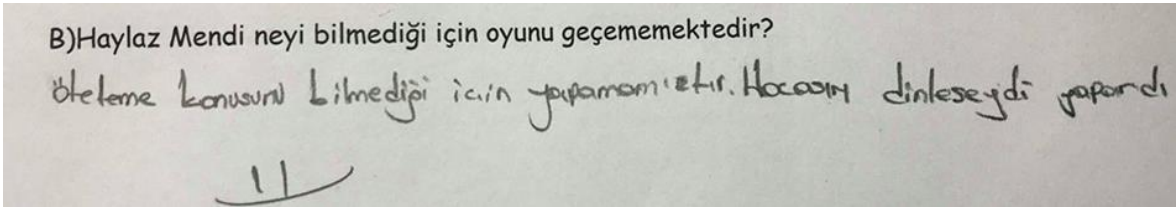 B)Haylaz Mendi neyi bilmediği için oyunu geçememektedir?
öteleme konusunu bilmediği için yapamamıştır. Hocasını dinleseydi yapardı
11